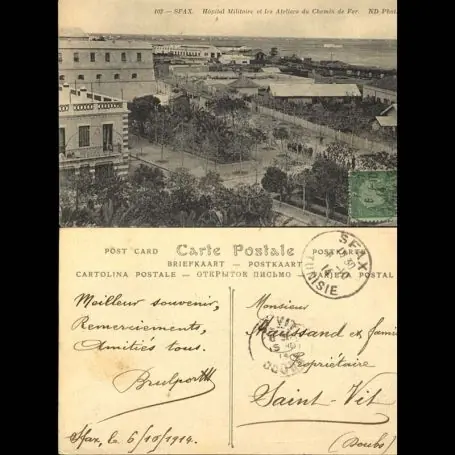 102 — SFAX. Hôpital Militaire et les Ateliers du Chemin de Fer. ND Phot
POST CARD Carte Postale POSTKARTE
BRIEFKAART — POSTKAART
CARTOLINA POSTALE — ОТКРЫТОЕ ПИСЬМО — POSTAL
Meilleur souvenir,
Remerciements,
Amitiés tous.
Sfax, le 6/10/1914.
SFAX
TUNISIE
Monsieur
Maussand et famille
Propriétaire
Saint-Vit
(Doubs)